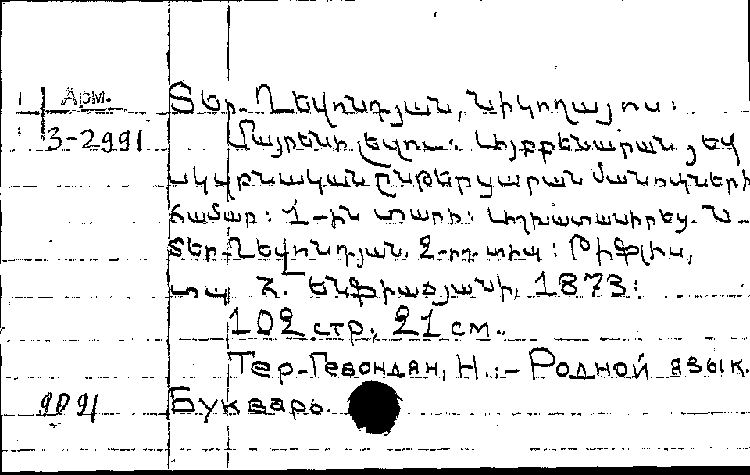 Арм.
3-2991
Տեր-Ղեվոնդյան, Նիկողայոս:
Մայրենի լեզու: Այբբենարան յեվ
սկզբնական ընթերցարան մանուկների
համար: 1-ին տարի: Աշխատասիրեց Ն.
Տեր-Ղեվոնդյան. 2-րդ տիպ: Թիֆլիս,
տպ Հ. Ենֆիաճյանի, 1873:
102 стр, 21 см.
Тер-Гевондян, Н.:- Родной язык.
9091
Букварь.